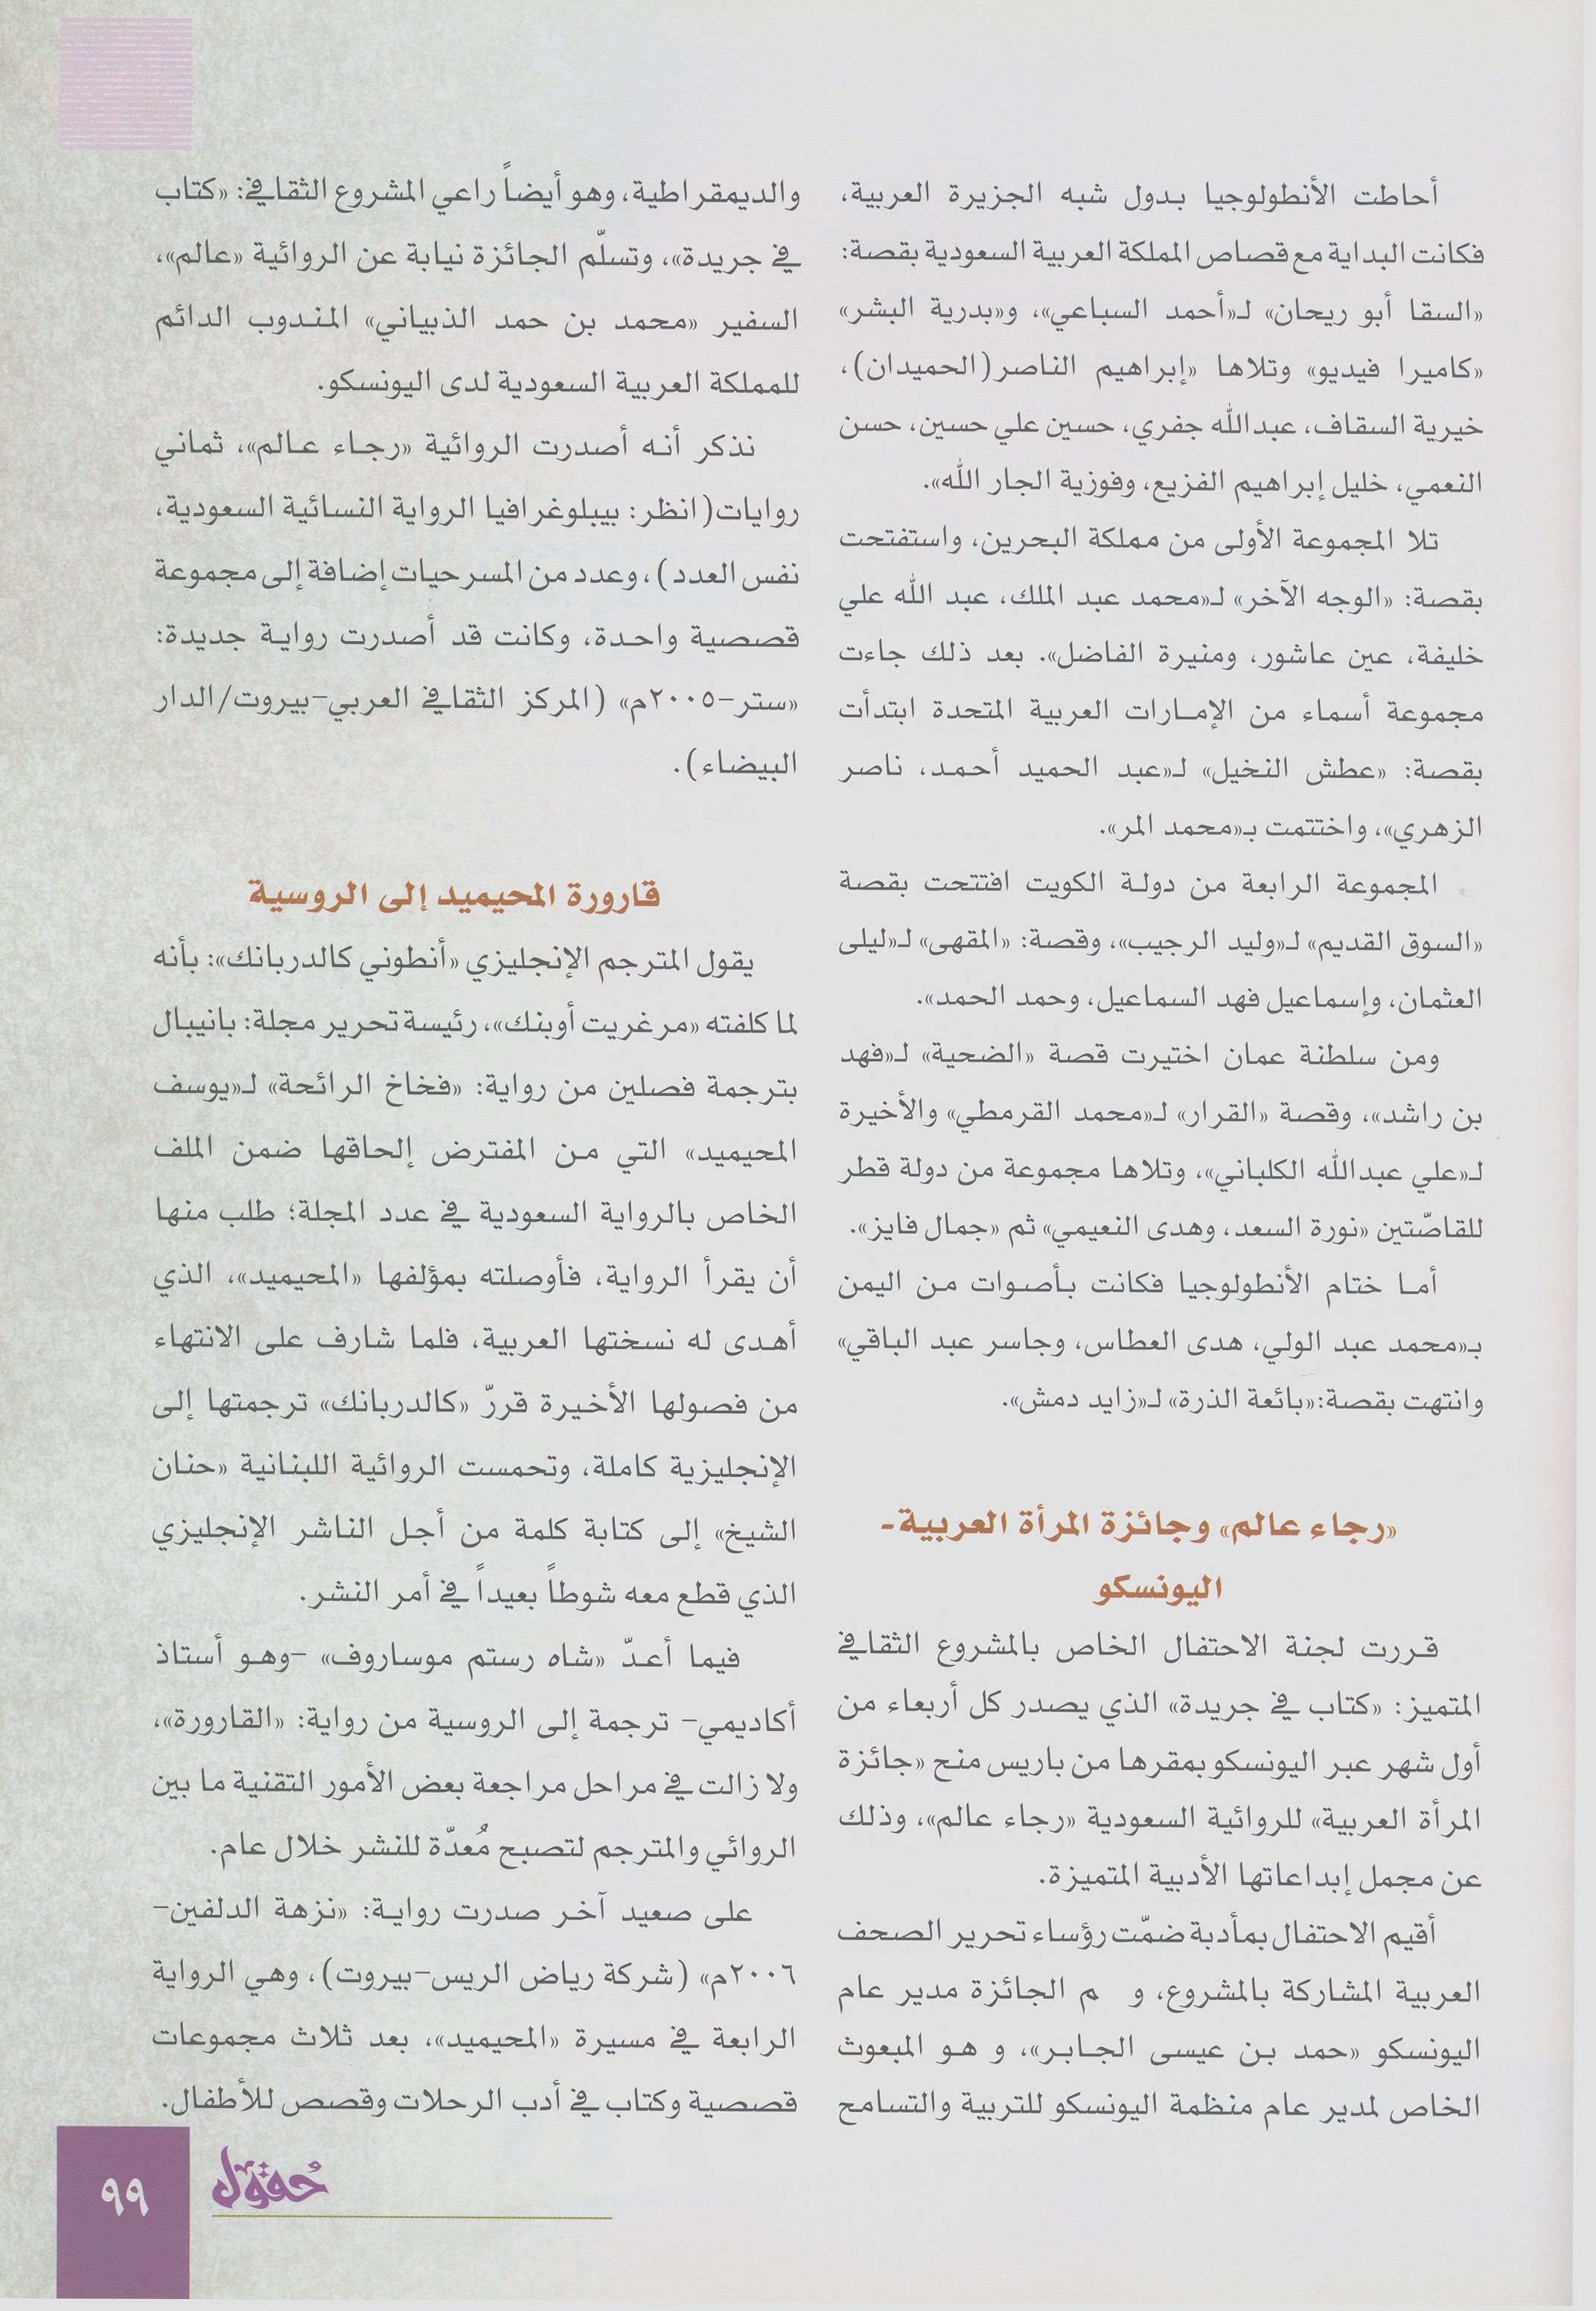 أحاطت الأنطولوجيا بدول شبه الجزيرة العربية،
فكانت البداية مع قصاص المملكة العربية السعودية بقصة:
«السقا أبو ريحان» لـ«أحمد السباعي»، و«بدرية البشر»
«كاميرا فيديو» وتلاها «إبراهيم الناصر(الحميدان)،
خيرية السقاف، عبدالله جفري، حسين علي حسين، حسن
النعمي، خليل إبراهيم الفزيع، وفوزية الجار الله».
تلا المجموعة الأولى من مملكة البحرين، واستفتحت
بقصة: «الوجه الآخر» لـ«محمد عبد الملك، عبد الله علي
خليفة، عين عاشور، ومنيرة الفاضل». بعد ذلك جاءت
مجموعة أسماء من الإمارات العربية المتحدة ابتدأت
بقصة: «عطش النخيل» لـ«عبد الحميد أحمد، ناصر
الزهري»، واختتمت بـ«محمد المر».
المجموعة الرابعة من دولة الكويت افتتحت بقصة
«السوق القديم» لـ«وليد الرجيب»، وقصة: «المقهى» لـ«ليلى
العثمان، وإسماعيل فهد السماعيل، وحمد الحمد».
ومن سلطنة عمان اختيرت قصة «الضحية» لـ«فهد
بن راشد»، وقصة «القرار» لـ«محمد القرمطي» والأخيرة
لـ«علي عبدالله الكلباني»، وتلاها مجموعة من دولة قطر
للقاصّتين «نورة السعد، وهدى النعيمي» ثم «جمال فايز».
أما ختام الأنطولوجيا فكانت بأصوات من اليمن
بـ«محمد عبد الولي، هدى العطاس، وجاسر عبد الباقي»
وانتهت بقصة:«بائعة الذرة» لـ«زايد دمش».
«رجاء عالم» وجائزة المرأة العربية-
اليونسكو
قررت لجنة الاحتفال الخاص بالمشروع الثقافي
المتميز: «كتاب في جريدة» الذي يصدر كل أربعاء من
أول شهر عبر اليونسكو بمقرها من باريس منح «جائزة
المرأة العربية» للروائية السعودية «رجاء عالم»، وذلك
عن مجمل إبداعاتها الأدبية المتميزة.
أقيم الاحتفال بمأدبة ضمّت رؤساء تحرير الصحف
العربية المشاركة بالمشروع، و م الجائزة مدير عام
اليونسكو «حمد بن عيسى الجابر»، و هو المبعوث
الخاص لمدير عام منظمة اليونسكو للتربية والتسامح
والديمقراطية، وهو أيضاً راعي المشروع الثقافي: «كتاب
في جريدة»، وتسلّم الجائزة نيابة عن الروائية «عالم»،
السفير «محمد بن حمد الذبياني» المندوب الدائم
للمملكة العربية السعودية لدى اليونسكو.
نذكر أنه أصدرت الروائية «رجاء عالم»، ثماني
روايات(انظر: بيبلوغرافيا الرواية النسائية السعودية،
نفس العدد)، وعدد من المسرحيات إضافة إلى مجموعة
قصصية واحدة، وكانت قد أصدرت رواية جديدة:
«ستر-٢٠٠٥م» (المركز الثقافي العربي-بيروت/الدار
البيضاء).
قارورة المحيميد إلى الروسية
يقول المترجم الإنجليزي «أنطوني كالدربانك»: بأنه
لما كلفته «مرغريت أوبنك»، رئيسة تحرير مجلة: بانيبال
بترجمة فصلين من رواية: «فخاخ الرائحة» لـ«يوسف
المحيميد» التي من المفترض إلحاقها ضمن الملف
الخاص بالرواية السعودية في عدد المجلة؛ طلب منها
أن يقرأ الرواية، فأوصلته بمؤلفها «المحيميد»، الذي
أهدى له نسختها العربية، فلما شارف على الانتهاء
من فصولها الأخيرة قررّ «كالدربانك» ترجمتها إلى
الإنجليزية كاملة، وتحمست الروائية اللبنانية «حنان
الشيخ» إلى كتابة كلمة من أجل الناشر الإنجليزي
الذي قطع معه شوطاً بعيداً في أمر النشر.
فيما أعدّ «شاه رستم موساروف» -وهو أستاذ
أكاديمي- ترجمة إلى الروسية من رواية: «القارورة»،
ولا زالت في مراحل مراجعة بعض الأمور التقنية ما بين
الروائي والمترجم لتصبح مُعدّة للنشر خلال عام.
على صعيد آخر صدرت رواية: «نزهة الدلفين-
٢٠٠٦م» (شركة رياض الريس-بيروت)، وهي الرواية
الرابعة في مسيرة «المحيميد»، بعد ثلاث مجموعات
قصصية وكتاب في أدب الرحلات وقصص للأطفال.
حُقول
٩٩